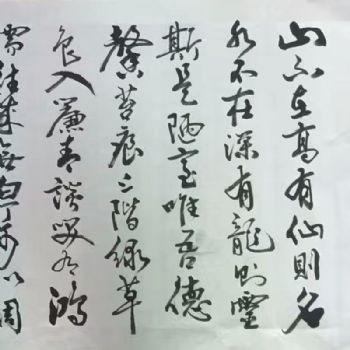 山不在高有仙則名
水不在深有龍則靈
斯是陋室唯吾德
馨苔痕上階綠草
色入簾青談笑有鴻
往来無白丁可以